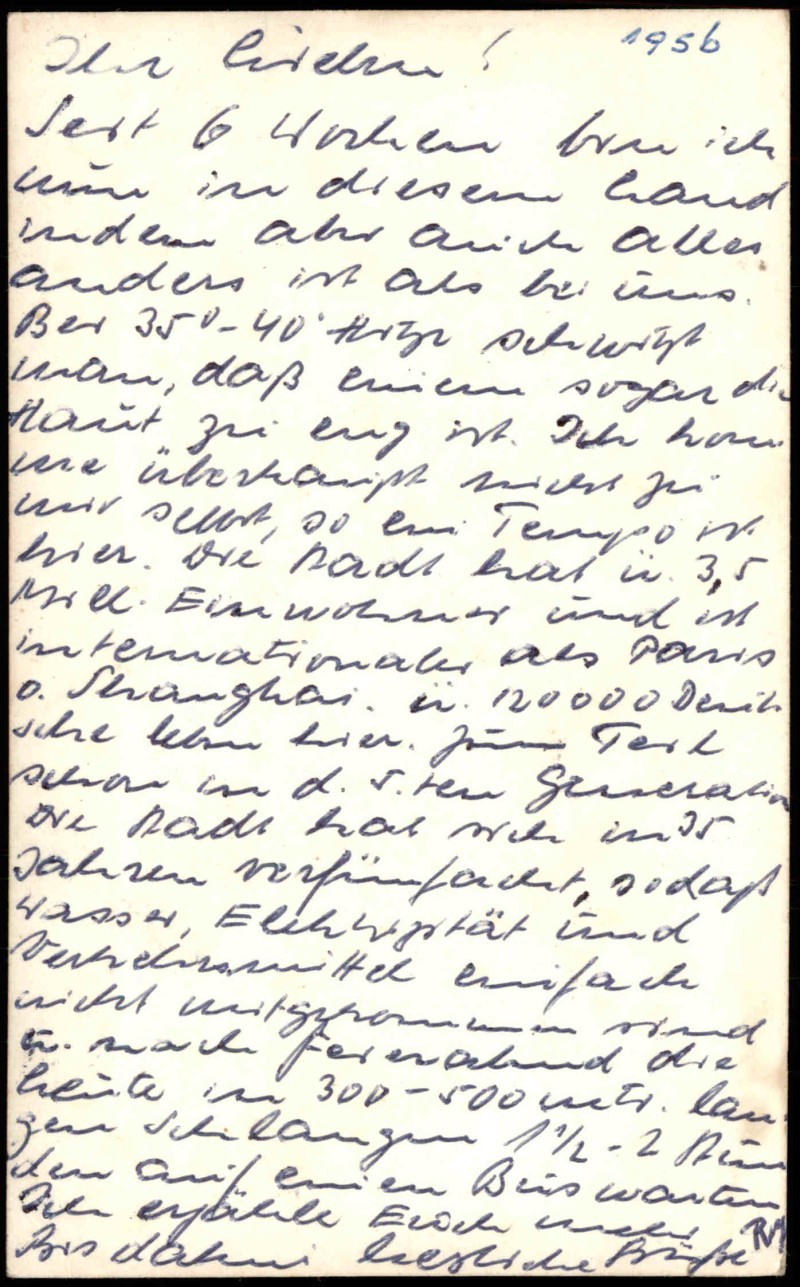 1956
Ihr Lieben!
Seit 6 Wochen bin ich
nun in diesem Land
indem aber auch alles
anders ist als bei uns.
Bei 35°-40° Hitze schwitzt
man, daß einem sogar die
Haut zu eng ist. Ich kom
me überhaupt nicht zu
mir selbst, so ein Tempo ist
hier. Die Stadt hat ü. 3,5
Mill. Einwohner und ist
internationaler als Paris
o. Shanghai. ü. 120000 Deut
sche leben hier. Zum Teil
schon in d. 5.ten Generation
Die Stadt hat sich in 35
Jahren verfünffacht, sodaß
Wasser, Elektrizität und
Verkehrsmittel einfach
nicht mitgekommen sind
u. nach Feierabend die
Leute in 300-500 mtr. lan-
gen Schlangen 1½-2 Stun
den auf einen Bus warten
Ich erzähle Euch mehr
Bis dahin herzliche Grüße